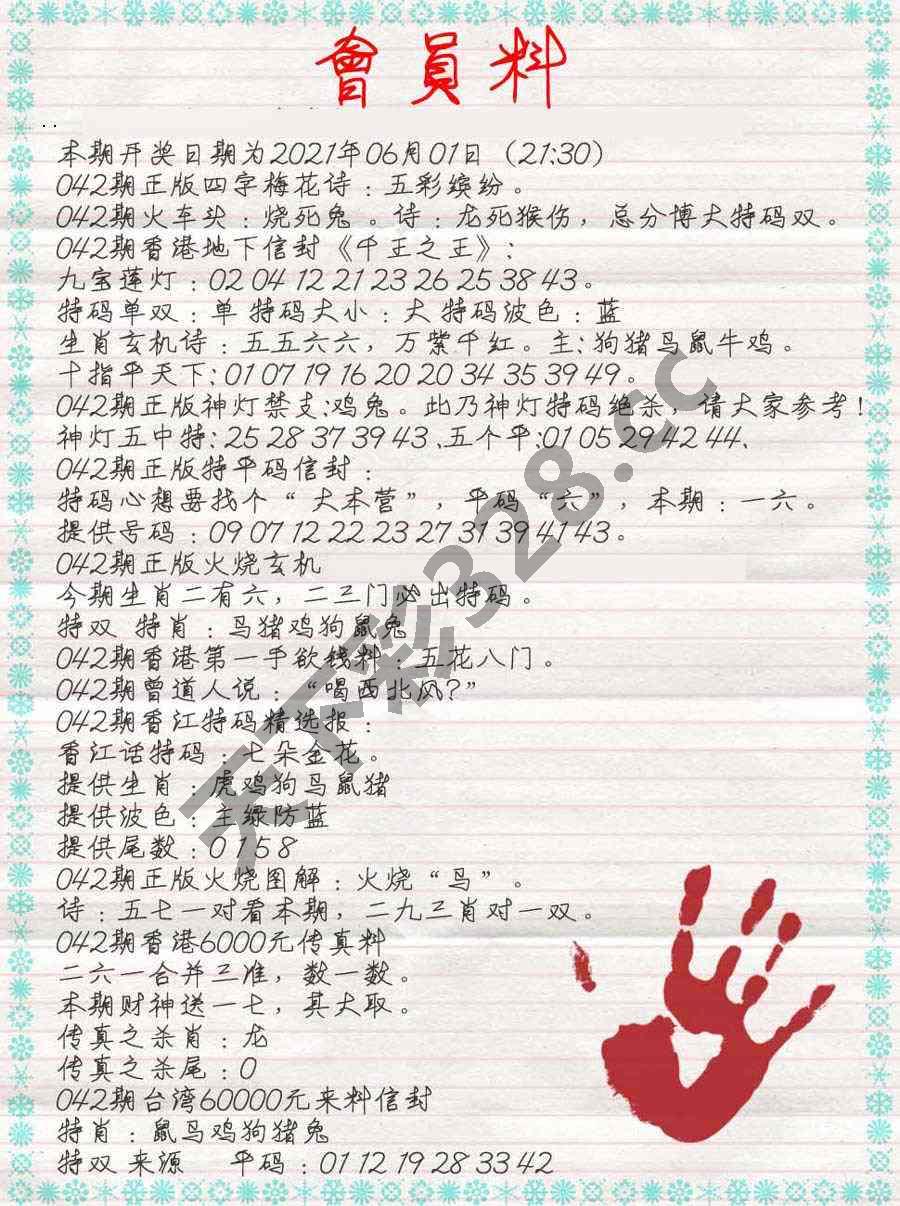 會員料
本期开奖日期为2021年06月01日（21:30）
042期正版四字梅花诗：五彩缤纷。
042期火车头：烧死兔。诗：龙死猴伤，总分博大特码双。
042期香港地下信封《千王之王》：
九宝莲灯：02 04 12 21 23 26 25 38 43。
特码单双：单 特码大小：大 特码波色：蓝
生肖玄机诗：五五六六，万紫千红。主：狗猪马鼠牛鸡。
十指平天下：01 07 19 16 20 20 34 35 39 49。
042期正版神灯禁支：鸡兔。此乃神灯特码绝杀，请大家参考！
神灯五中特：25 28 37 39 43、五个平：01 05 29 42 44、
042期正版特平码信封：
特码心想要找个“大本营”，平码“六”，本期：一六。
提供号码：09 07 12 22 23 27 31 39 41 43。
042期正版火烧玄机
今期生肖二有六，二三门必出特码。
特双 特肖：马猪鸡狗鼠兔
042期香港第一手欲钱料：五花八门。
042期曾道人说：“喝西北风?”
042期香江特码精选报：
香江话特码：七朵金花。
提供生肖：虎鸡狗马鼠猪
提供波色：主绿防蓝
提供尾数：0 1 5 8
042期正版火烧图解：火烧“鸟”。
诗：五七一对看本期，二九三肖对一双。
042期香港6000元传真料
二六一合并三准，数一数。
本期财神送一七，其大取。
传真之杀肖：龙
传真之杀尾：0
042期台湾60000元来料信封
特肖：鼠马鸡狗猪兔
特双 来源 平码：01 12 19 28 33 42
天下彩328.cc